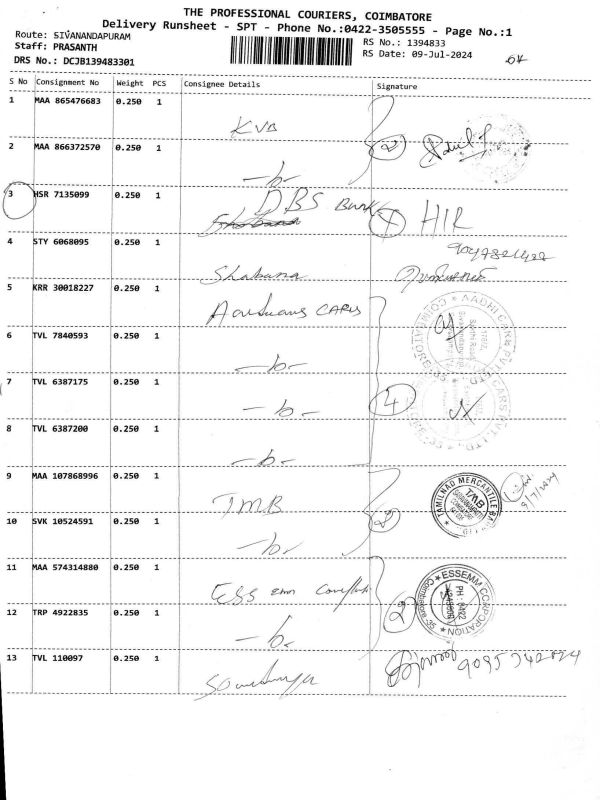 THE PROFESSIONAL COURIERS, COIMBATORE
Delivery Runsheet - SPT - Phone No.:0422-3505555 - Page No.:1
Route: SIVANANDAPURAM
Staff: PRASANTH
DRS No.: DCJB139483301
RS No.: 1394833
RS Date: 09-Jul-2024
S No Consignment No Weight PCS Consignee Details Signature
1 MAA 865476683 0.250 1 KVB
2 MAA 866372570 0.250 1 -"- 2
3 HSR 7135099 0.250 1 DBS Bank 1 HIR
4 STY 6068095 0.250 1 Shabana
5 KRR 30018227 0.250 1 CARS
6 TVL 7840593 0.250 1 -"-
7 TVL 6387175 0.250 1 -"- 4
8 TVL 6387200 0.250 1 -"-
9 MAA 107868996 0.250 1 TMB
TAMILNAD MERCANTILE
TMB
10 SVK 10524591 0.250 1 -"- 2
11 MAA 574314880 0.250 1 ESS emm
ESSEMM CORPORATION
Coimbatore-35
PH: 0422
12 TRP 4922835 0.250 1 -"- 2
13 TVL 110097 0.250 1